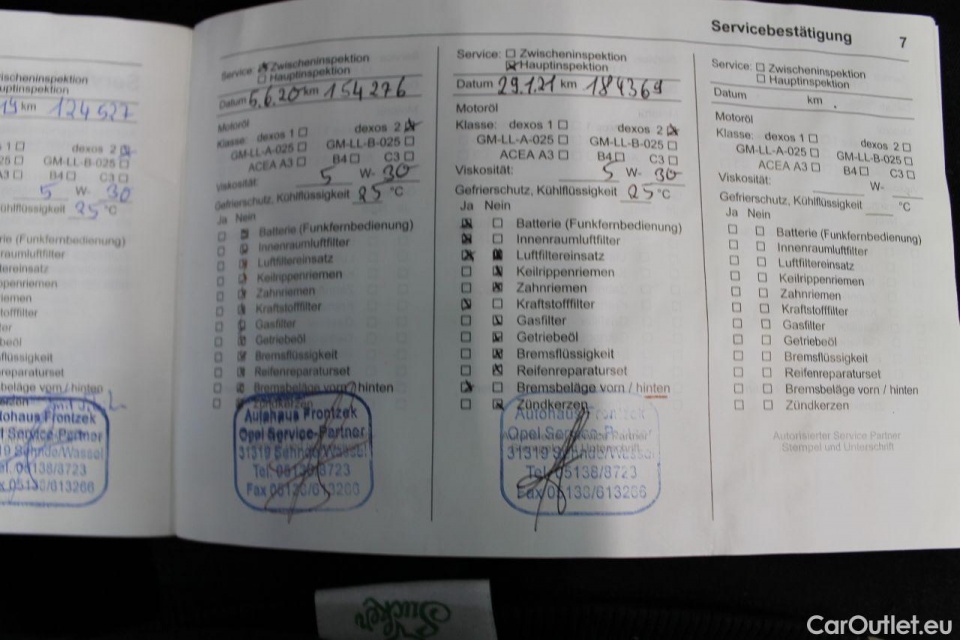 Servicebestätigung 7
Zwischeninspektion
Hauptinspektion
19 km 124527
1 dexos 2
25 GM-LL-B-025
A3 B4 C3
5 W- 30
Kühlflüssigkeit 25 °C
rie (Funkfernbedienung)
raumluftfilter
tereinsatz
penriemen
iemen
tofffilter
ter
eöl
flüssigkeit
reparaturset
beläge vorn / hinten
erzen
tohaus Frontzek
el Service-Partner
319 Sehnde/Wassel
el. 05138/8723
x 05138/613266
Service: Zwischeninspektion
Hauptinspektion
Datum 5.6.20 km 154276
Motoröl
Klasse: dexos 1 dexos 2
GM-LL-A-025 GM-LL-B-025
ACEA A3 B4 C3
Viskosität: 5 W- 30
Gefrierschutz, Kühlflüssigkeit 25 °C
Ja Nein
Batterie (Funkfernbedienung)
Innenraumluftfilter
Luftfiltereinsatz
Keilrippenriemen
Zahnriemen
Kraftstofffilter
Gasfilter
Getriebeöl
Bremsflüssigkeit
Reifenreparaturset
Bremsbeläge vorn / hinten
Zündkerzen
Autohaus Frontzek
Opel Service-Partner
31319 Sehnde/Wassel
Tel. 05138/8723
Fax 05138/613266
Service: Zwischeninspektion
Hauptinspektion
Datum 29.1.21 km 184369
Motoröl
Klasse: dexos 1 dexos 2
GM-LL-A-025 GM-LL-B-025
ACEA A3 B4 C3
Viskosität: 5 W- 30
Gefrierschutz, Kühlflüssigkeit 25 °C
Ja Nein
Batterie (Funkfernbedienung)
Innenraumluftfilter
Luftfiltereinsatz
Keilrippenriemen
Zahnriemen
Kraftstofffilter
Gasfilter
Getriebeöl
Bremsflüssigkeit
Reifenreparaturset
Bremsbeläge vorn / hinten
Zündkerzen
Autohaus Frontzek
Opel Service-Partner
31319 Sehnde/Wassel
Tel. 05138/8723
Fax 05138/613266
Service: Zwischeninspektion
Hauptinspektion
Datum km
Motoröl
Klasse: dexos 1 dexos 2
GM-LL-A-025 GM-LL-B-025
ACEA A3 B4 C3
Viskosität: W-
Gefrierschutz, Kühlflüssigkeit °C
Ja Nein
Batterie (Funkfernbedienung)
Innenraumluftfilter
Luftfiltereinsatz
Keilrippenriemen
Zahnriemen
Kraftstofffilter
Gasfilter
Getriebeöl
Bremsflüssigkeit
Reifenreparaturset
Bremsbeläge vorn / hinten
Zündkerzen
Autorisierter Service Partner
Stempel und Unterschrift
CarOutlet.eu